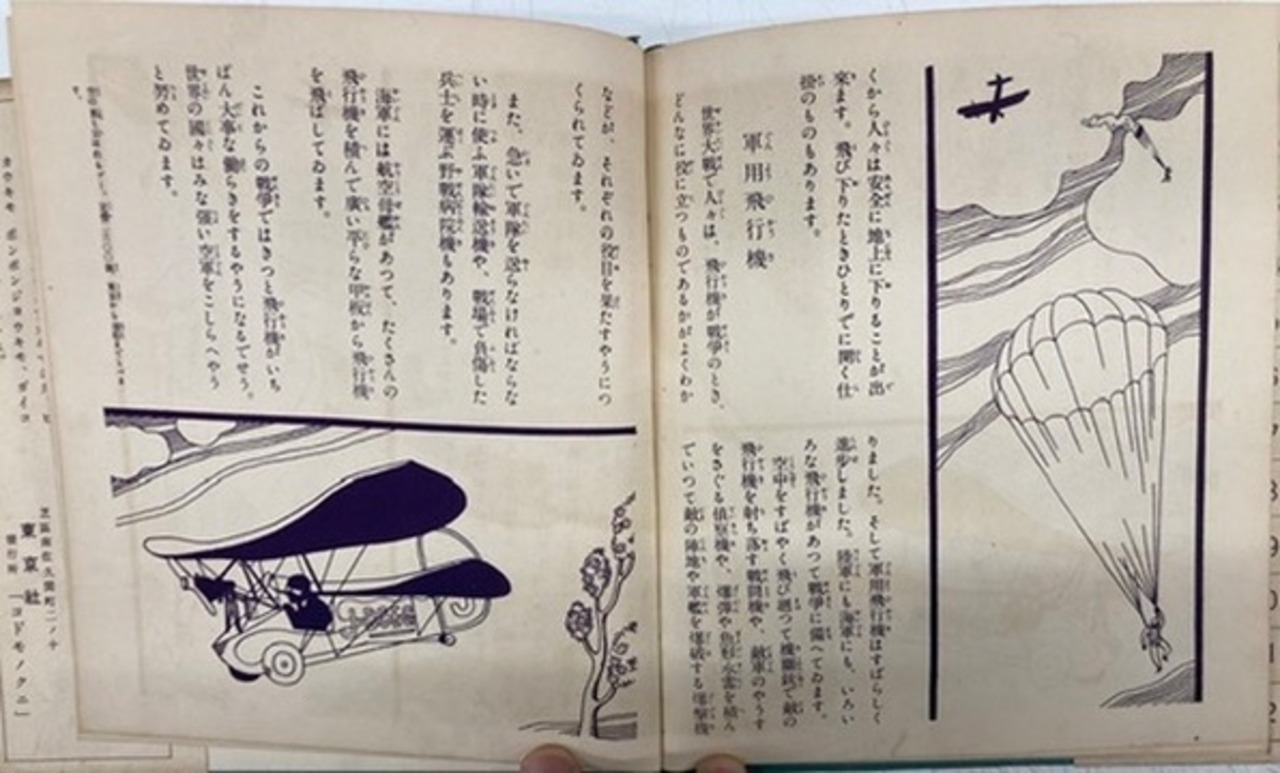 くから人々は安全に地上に下りることが出
來ます。飛び下りたときひとりでに開く仕
掛のものもあります。
軍用飛行機
世界大戰で人々は、飛行機が戰爭のとき、
どんなに役に立つものであるかがよくわか
りました。そして軍用飛行機はすばらしく
進歩しました。陸軍にも海軍にも、いろい
ろな飛行機があつて戰爭に備へてゐます。
空中をすばやく飛び廻つて機關銃で敵の
飛行機を射ち落す戰鬪機や、敵軍のやうす
をさぐる偵察機や、爆彈や魚形水雷を積ん
でいつて敵の陣地や軍艦を爆破する爆撃機
などが、それぞれの役目を果たすやうにつ
くられてゐます。
また、急いで軍隊を送らなければならな
い時に使ふ軍隊輸送機や、戰場で負傷した
兵士を運ぶ野戰病院機もあります。
海軍には航空母艦があつて、たくさんの
飛行機を積んで廣い平らな甲板から飛行機
を飛ばしてゐます。
これからの戰爭ではきつと飛行機がいち
ばん大事な働らきをするやうになるでせう。
世界の國々はみな強い空軍をこしらへやう
と努めてゐます。
東京社
發行所「コドモノクニ」